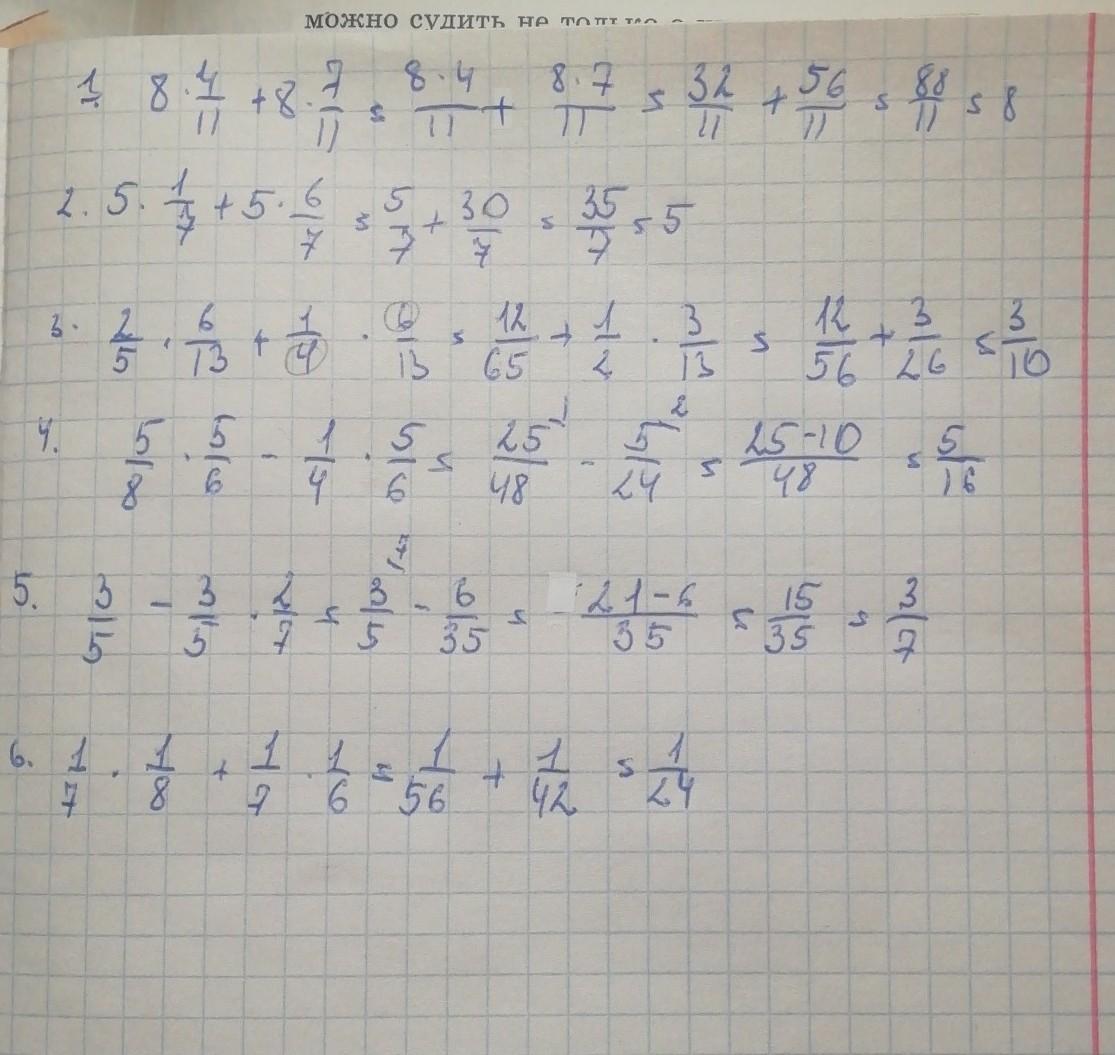 можно судить не только
1. 8 · 4/11 + 8 · 7/11 = 8·4/11 + 8·7/11 = 32/11 + 56/11 = 88/11 = 8
2. 5 · 1/7 + 5 · 6/7 = 5/7 + 30/7 = 35/7 = 5
3. 2/5 · 6/13 + 1/4 · 6/13 = 12/65 + 1/2 · 3/13 = 12/56 + 3/26 = 3/10
4. 5/8 · 5/6 - 1/4 · 5/6 = 25/48 ⁽¹ - 5/24 ⁽² = 25-10/48 = 5/16
5. 3/5 - 3/5 · 2/7 = 3/5 ⁽⁷ - 6/35 = 21-6/35 = 15/35 = 3/7
6. 1/7 · 1/8 + 1/7 · 1/6 = 1/56 + 1/42 = 1/24